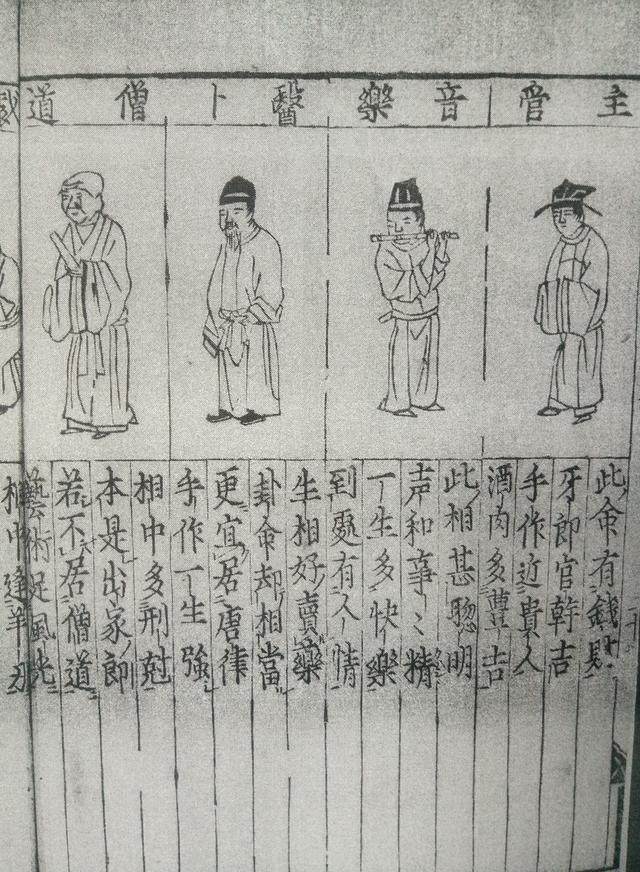 主管
音樂
醫卜
僧道
此命有錢財
牙郎官幹吉
手作近貴人
酒肉多豊吉
此相甚聰明
声和事〻精
一生多快樂
到處有人情
生相好賣藥
卦命却相當
更宜居唐律
手作一生強
相中多刑尅
本是出家郎
若不居僧道
藝術足風光
相中逢羊刃